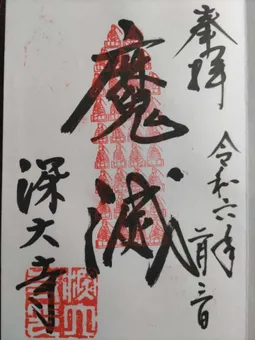 奉拝
令和六年
魔滅
深大寺